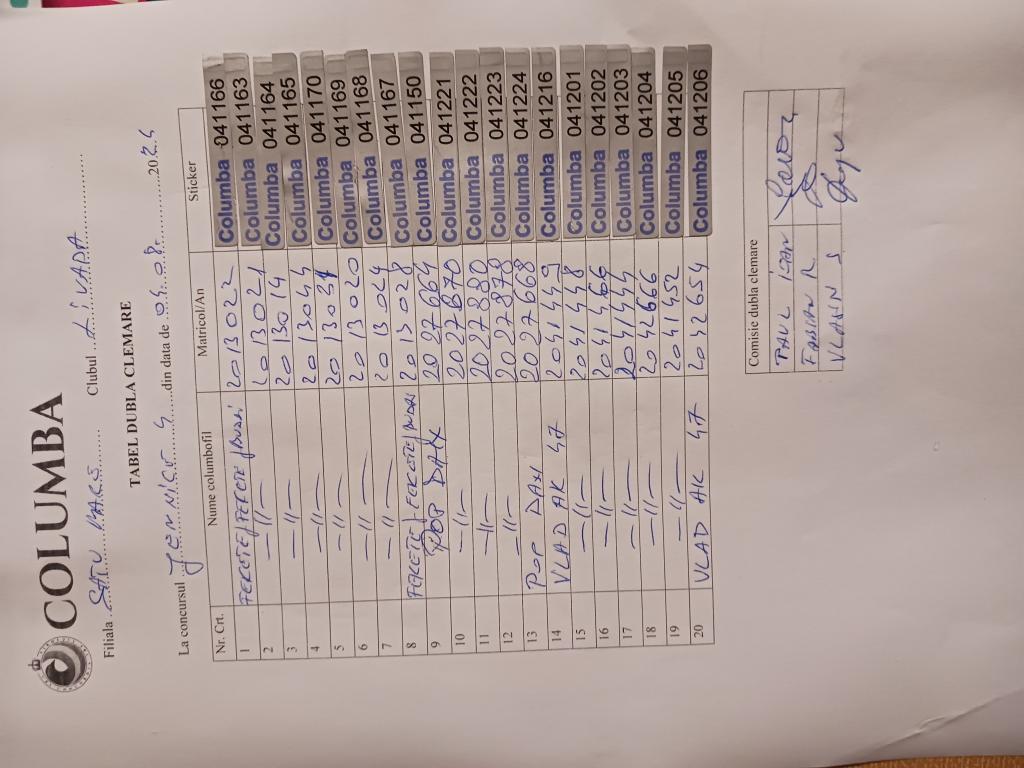 COLUMBA
Filiala SATU MARE Clubul LIVADA
TABEL DUBLA CLEMARE
La concursul din data de 04.08. 2024
Nr. Crt. Nume columbofil Matricol/An Sticker
1 FEKETE/FEKETE/ 2013022 Columba 041166
2 —11— 2013021 Columba 041163
3 —11— 2013014 Columba 041164
4 —11— 2013044 Columba 041165
5 —11— 2013031 Columba 041170
6 —11— 2013020 Columba 041169
7 —11— 2013024 Columba 041168
8 FEKETE/FEKETE/ 2013028 Columba 041167
9 POP DAN 2027664 Columba 041150
10 —11— 2027870 Columba 041221
11 —11— 2027880 Columba 041222
12 —11— 2027878 Columba 041223
13 POP DAN 2027668 Columba 041224
14 VLAD AK 47 2041449 Columba 041216
15 —11— 2041448 Columba 041201
16 —11— 2041466 Columba 041202
17 —11— 2041444 Columba 041203
18 —11— 2042666 Columba 041204
19 —11— 2041452 Columba 041205
20 VLAD AK 47 2042654 Columba 041206
Comisie dubla clemare
PAUL IOAN
FABIAN R.
VLASIN S